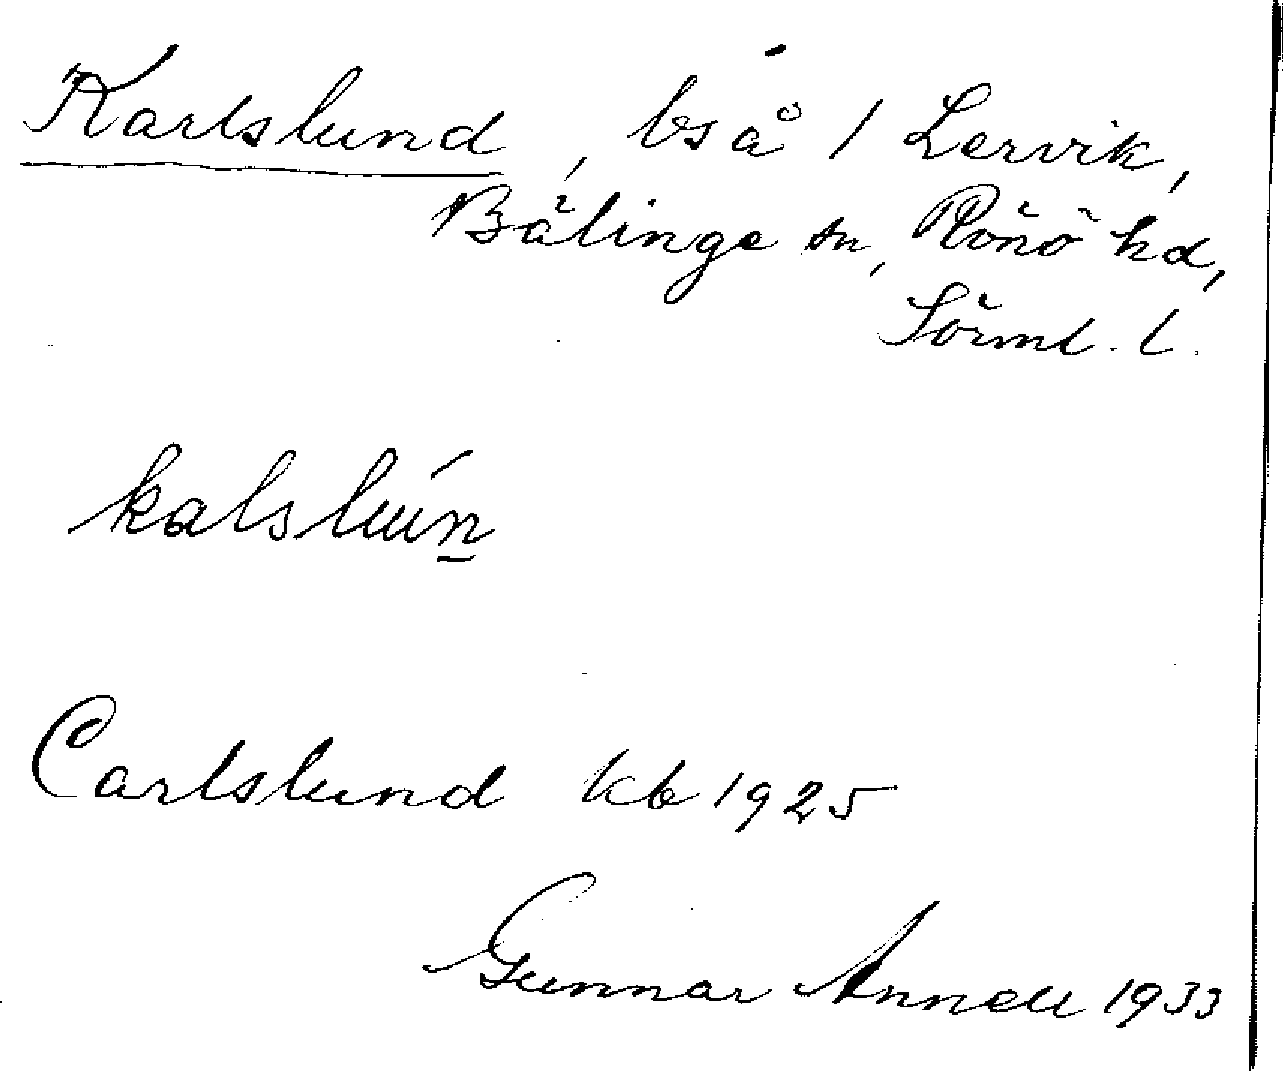 Karlslund, bs å 1 Lervik,
Bälinge sn, Rönö hd,
Sörml. l.
kalslún̲
Carlslund kb 1925
Gunnar Annell 1933